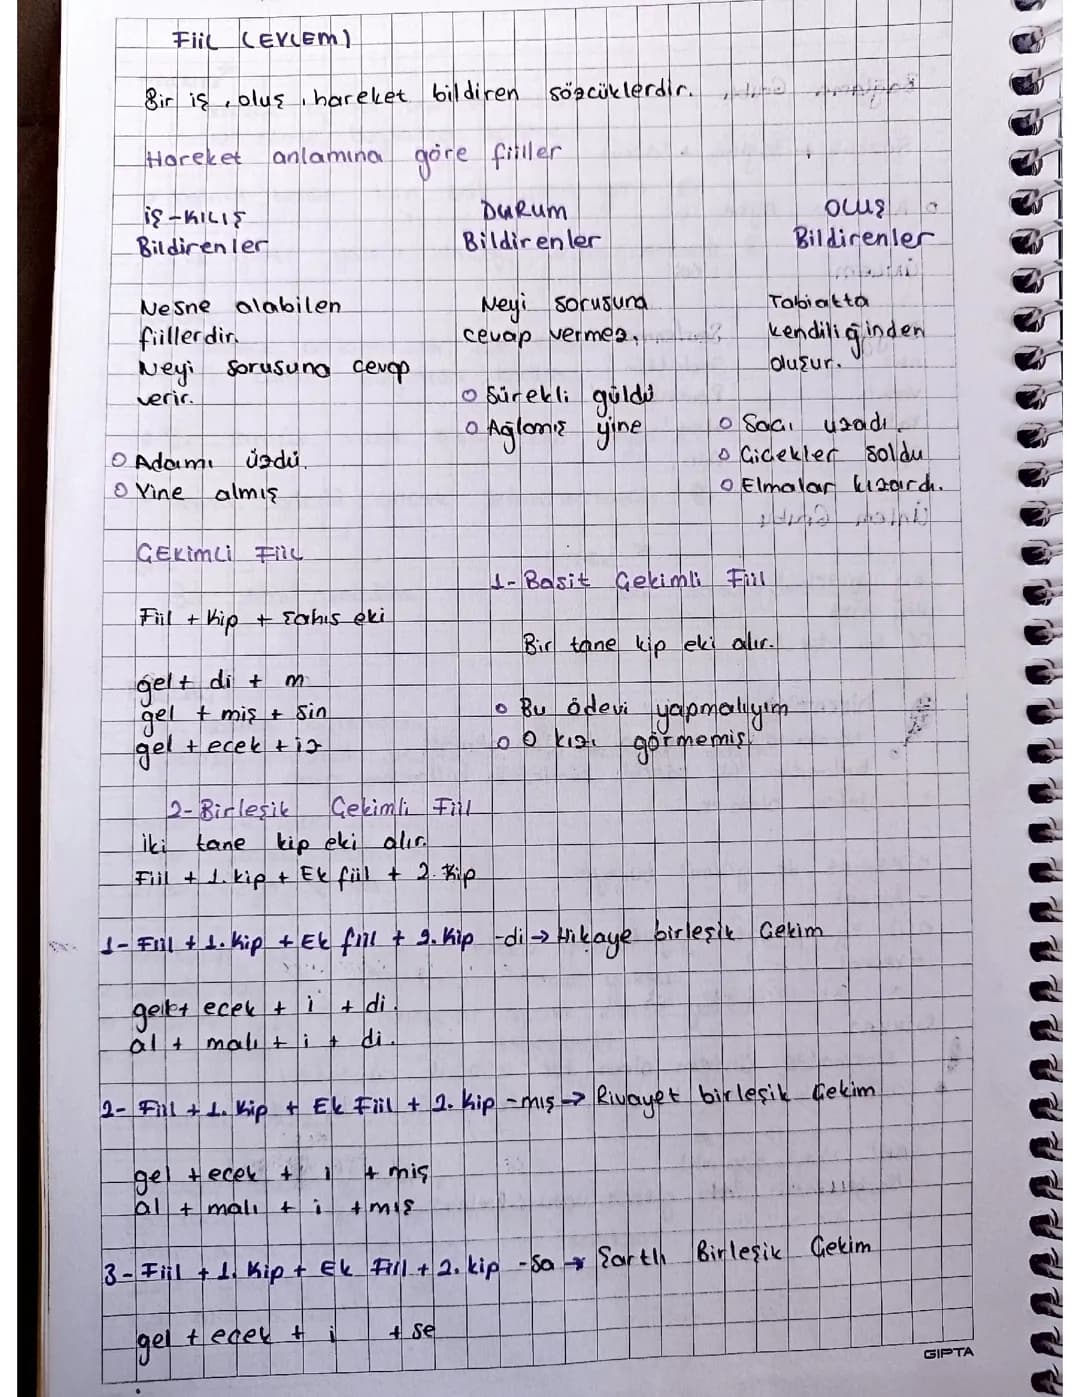 FİİL (EYLEM)
Bir iş, oluş, hareket bildiren sözcüklerdir.
Hareket anlamına göre fiiller
İŞ-KILIŞ
Bildirenler
Nesne alabilen
fiillerdir.
Neyi sorusuna cevap
verir.
o Adamı üzdü.
o Yine almış
DURUM
Bildirenler
Neyi sorusuna
cevap vermez.
o Sürekli güldü
o Ağlamış yine
OLUŞ
Bildirenler
Tabiatta
kendiliğinden
oluşur.
o Saçı uzadı.
o Çiçekler soldu
o Elmalar kızardı.
ÇEKİMLİ FİİL
Fiil + Kip + Şahıs eki
gel + di + m
gel + miş + sin
gel + ecek + iz
1- Basit Çekimli Fiil
Bir tane kip eki alır.
o Bu ödevi yapmalıyım
o O kızı görmemiş.
2- Birleşik Çekimli Fiil
İki tane kip eki alır.
Fiil + 1. kip + Ek fiil + 2. Kip
1- Fiil + 1. Kip + Ek fiil + 2. Kip -di → Hikaye birleşik Çekim
gel + ecek + i + di.
al + malı + i + di.
2- Fiil + 1. Kip + Ek Fiil + 2. Kip -mış → Rivayet birleşik Çekim
gel + ecek + i + miş
al + malı + i + mış
3- Fiil + 1. Kip + Ek Fiil + 2. kip -sa → Şartlı Birleşik Çekim
gel + ecek + i + se
GIPTA